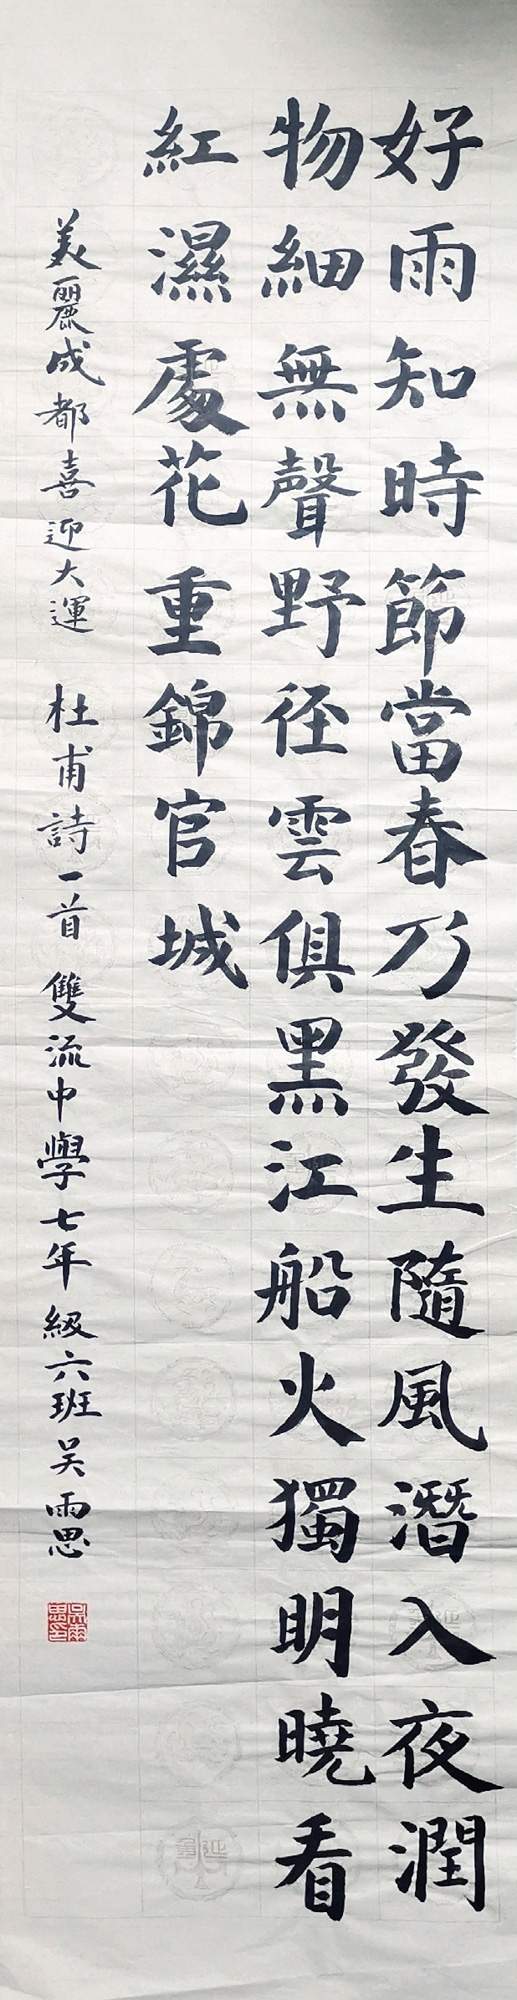 好雨知時節當春乃發生隨風潛入夜潤
物細無聲野径雲俱黑江船火獨明曉看
紅濕處花重錦官城
美麗成都喜迎大運 杜甫詩一首 雙流中學七年級六班吴雨思
吴雨思印